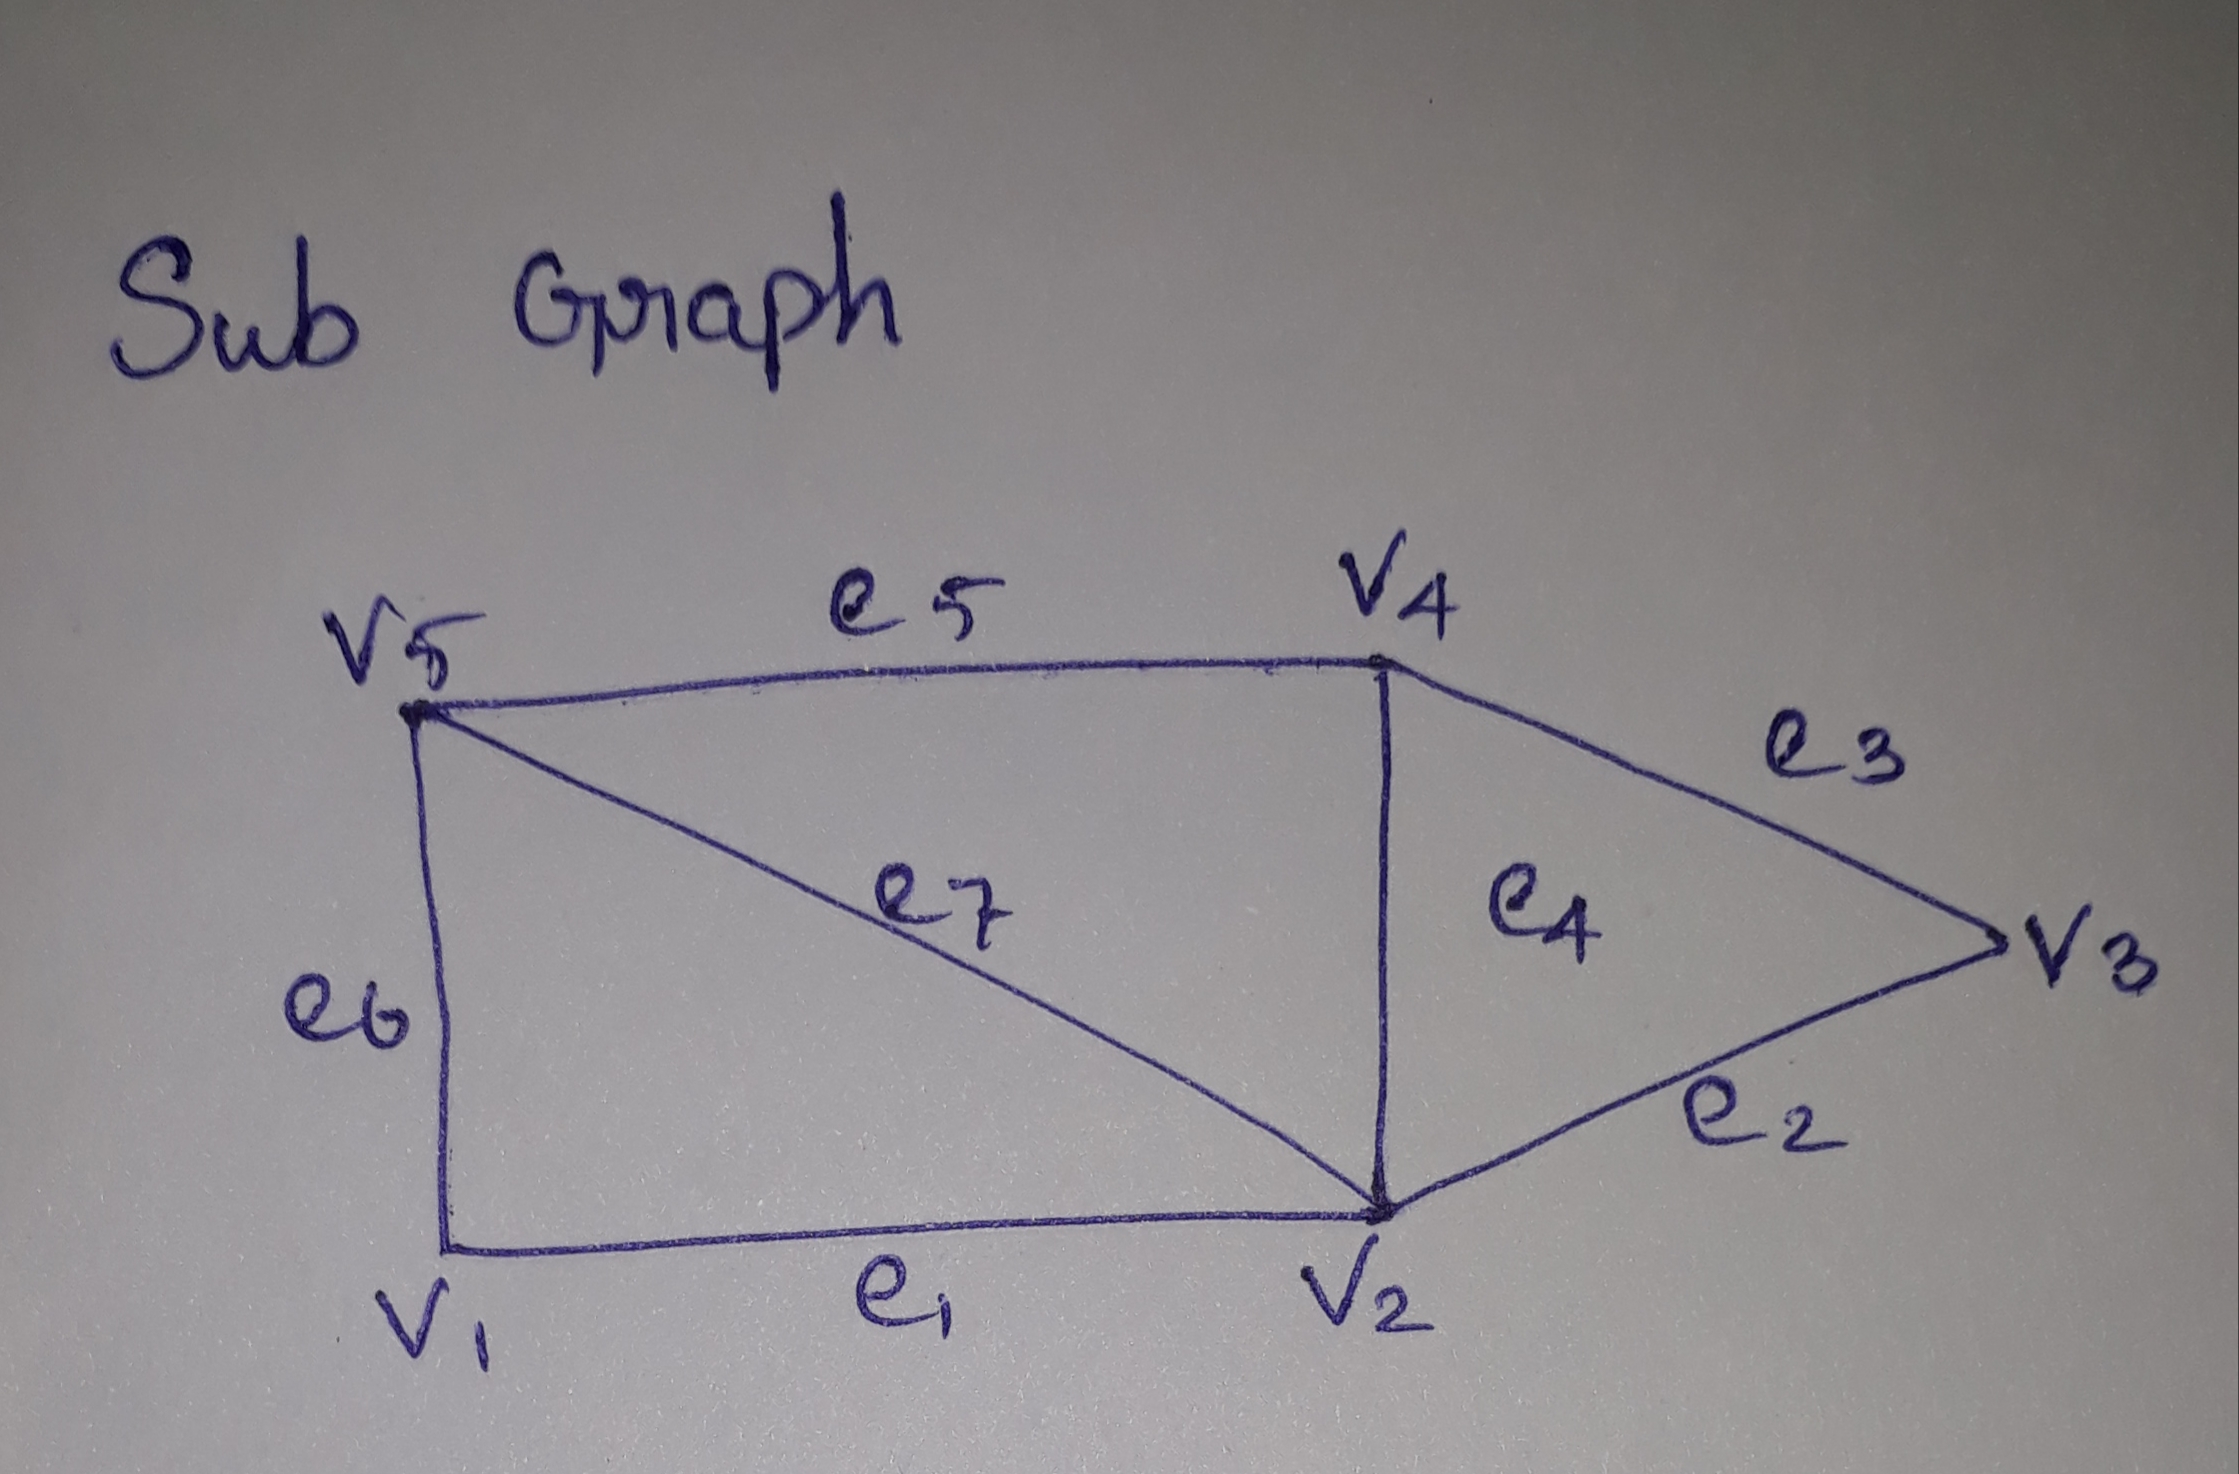 Sub Graph
V5 e5 V4
e3
e7 e4 V3
e6
e2
V1 e1 V2